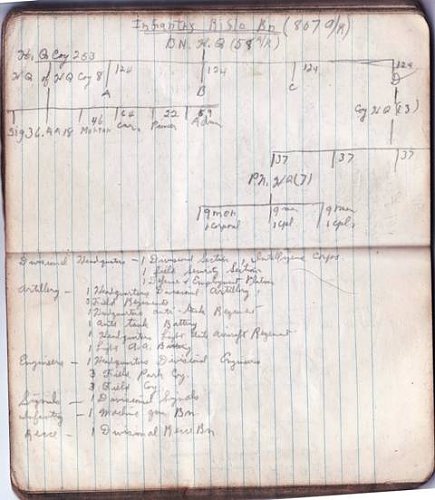 Infantry Rifle Bn (807 O/R)
BN. H.Q (58 O/R)
H.Q Coy 253
HQ of HQ Coy 8 124 124 124 124
A B C D
Coy HQ (13)
46 64 22 59
Sig 36. AA 18 Mortar Carr. Pioneer Adm
37 37 37
Pl. HQ (7)
9 men 9 men 9 men
1 corporal 1 cpl 1 cpl.
Divisional Headquarters - 1 Divisional Section, Intelligence Corps
1 Field Security Section
1 Defence & Employment Platoon
Artillery - 1 Headquarters Divisional Artillery
3 Field Regiments
1 Headquarters anti-tank Regiment
1 Anti tank Battery
1 Headquarters Light Anti Aircraft Regiment
1 Light A.A. Battery
Engineers - 1 Headquarters Divisional Engineers
3 Field Park Coy
3 Field Coy
Signals - 1 Divisional Signals
Infantry - 1 Machine gun Bn
Recce - 1 Divisional Recce Bn